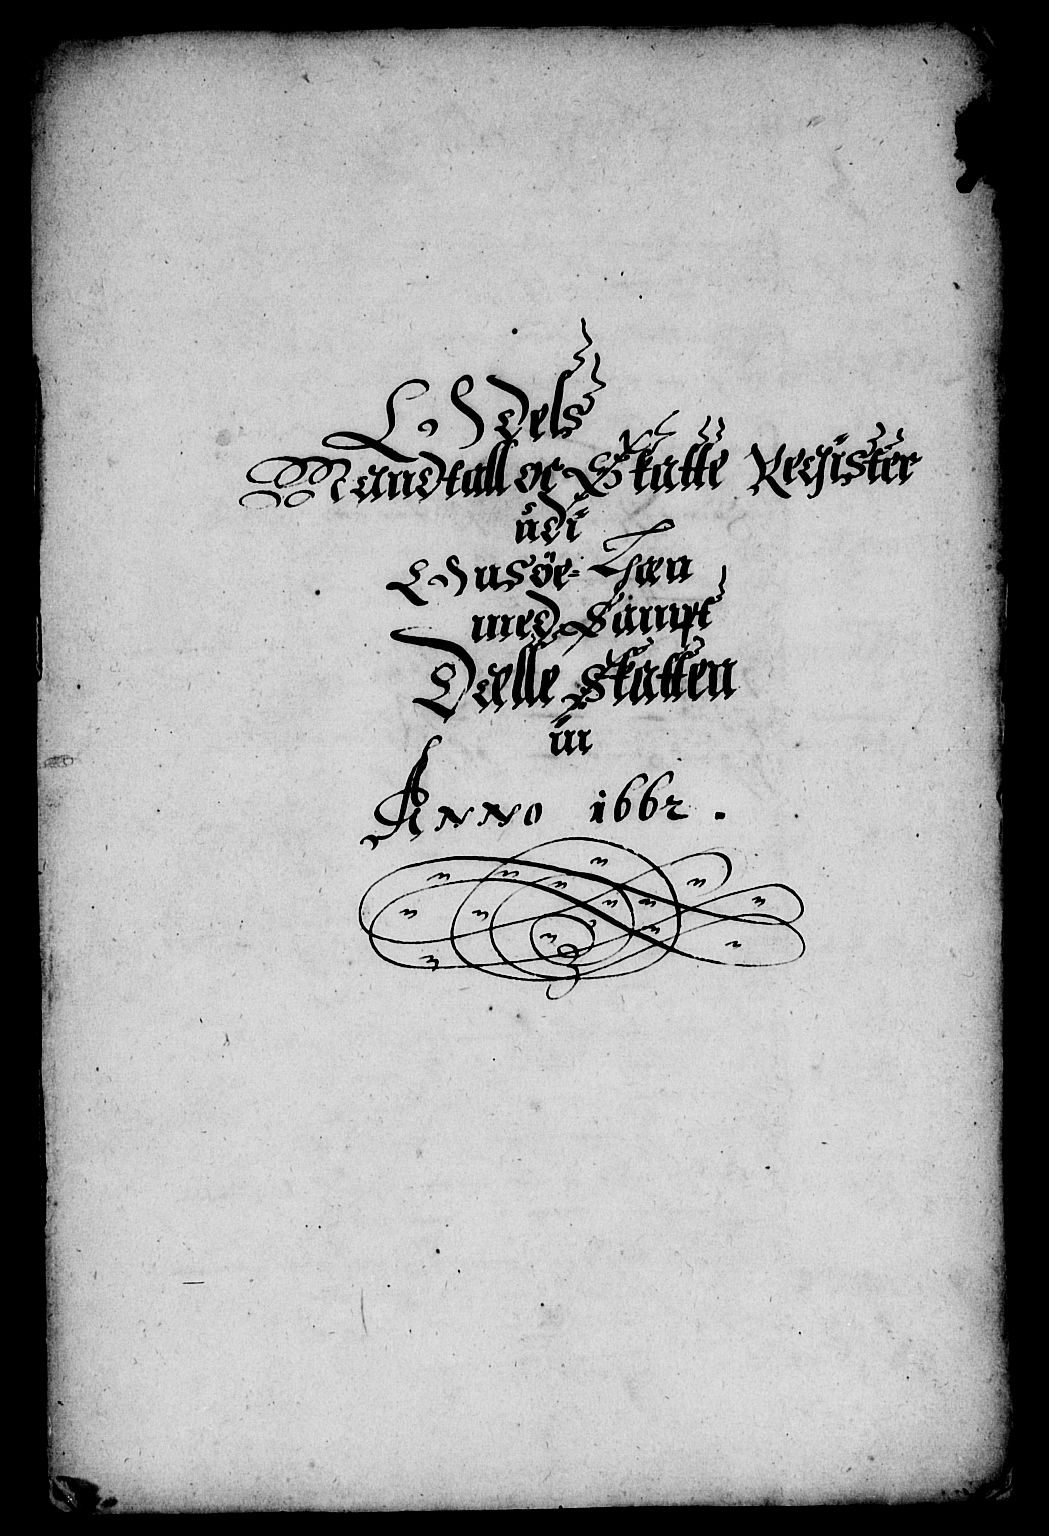 Odels
Mandtall oc Skatte Register
udi
Onsöe-Læn
med Sampt
Dælle Skatten
in
Anno 1662.